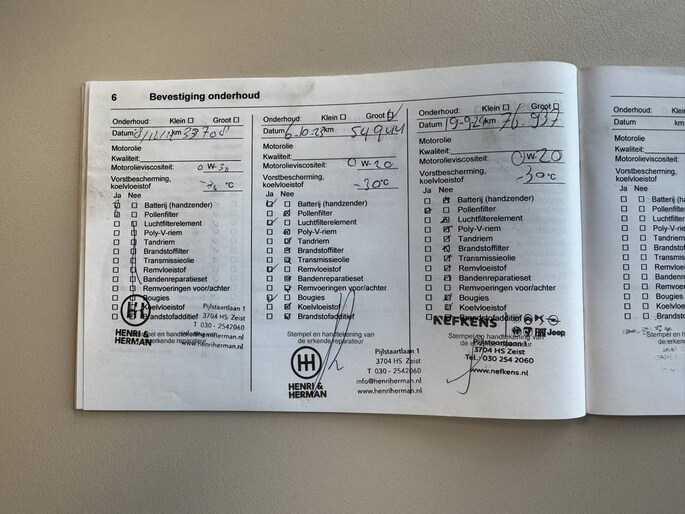 6 Bevestiging onderhoud
Onderhoud: Klein Groot
Datum km 33708
Motorolie
Kwaliteit:
Motorolieviscositeit: 0 W-30
Vorstbescherming,
koelvloeistof °C
Ja Nee
Batterij (handzender)
Pollenfilter
Luchtfilterelement
Poly-V-riem
Tandriem
Brandstoffilter
Transmissieolie
Remvloeistof
Bandenreparatieset
Remvoeringen voor/achter
Bougies
Koelvloeistof
Brandstofadditief
Stempel en handtekening van
de erkende reparateur
HENRI &
HERMAN
Pijlstaartlaan 1
3704 HS Zeist
T 030 - 2542060
www.henriherman.nl
Onderhoud: Klein Groot
Datum 6-10-23 km 54944
Motorolie
Kwaliteit:
Motorolieviscositeit: 0 W-20
Vorstbescherming,
koelvloeistof -30 °C
Ja Nee
Batterij (handzender)
Pollenfilter
Luchtfilterelement
Poly-V-riem
Tandriem
Brandstoffilter
Transmissieolie
Remvloeistof
Bandenreparatieset
Remvoeringen voor/achter
Bougies
Koelvloeistof
Brandstofadditief
Stempel en handtekening van
de erkende reparateur
HENRI &
HERMAN
Pijlstaartlaan 1
3704 HS Zeist
T 030 - 2542060
info@henriherman.nl
www.henriherman.nl
Onderhoud: Klein Groot
Datum 19-9-24 km 76.937
Motorolie
Kwaliteit:
Motorolieviscositeit: 0 W-20
Vorstbescherming,
koelvloeistof -30 °C
Ja Nee
Batterij (handzender)
Pollenfilter
Luchtfilterelement
Poly-V-riem
Tandriem
Brandstoffilter
Transmissieolie
Remvloeistof
Bandenreparatieset
Remvoeringen voor/achter
Bougies
Koelvloeistof
Brandstofadditief
Stempel en handtekening van
de erkende reparateur
NEFKENS
Jeep
Pijlstaartlaan 1
3704 HS Zeist
Tel.: 030 254 2060
www.nefkens.nl
Onderhoud: Klei
Datum
Motorolie
Kwaliteit:
Motorolieviscositeit:
Vorstbescherming,
koelvloeistof
Ja Nee
Batterij (
Pollenfil
Luchtfil
Poly-V
Tandri
Brands
Transm
Remvl
Bande
Remv
Boug
Koelv
Bran